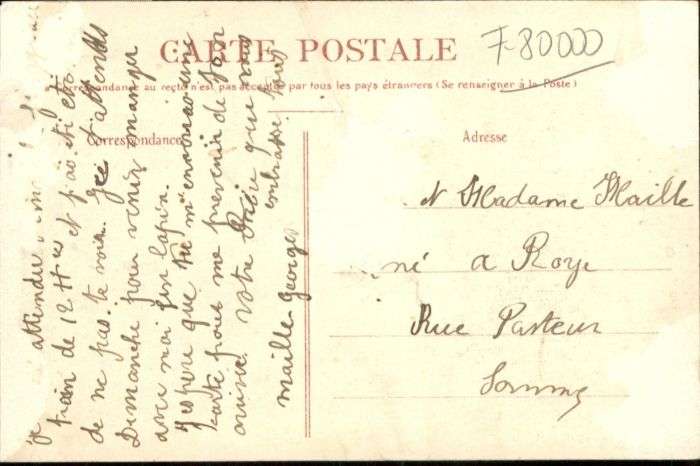 CARTE POSTALE
7-80000
Correspondance au recto n'est pas acceptée par tous les pays étrangers (Se renseigner à la Poste)
Correspondance
Adresse
je attendu
train de 12 H et
de ne pas te voir. Je t'attends
Dimanche pour venir manger
avec moi un lapin.
J'espère que tu m'enverras une
carte pour me prévenir de ton
arrivée. Votre que vous
embrasse tous
Maille Georges
Madame Maille
né a Roye
Rue Pasteur
Somme